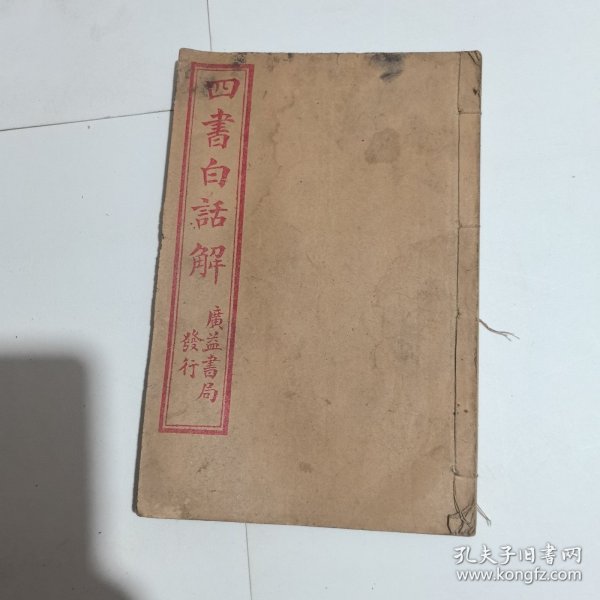 四書白話解
廣益書局
發行
孔夫子旧书网
www.kongfz.com